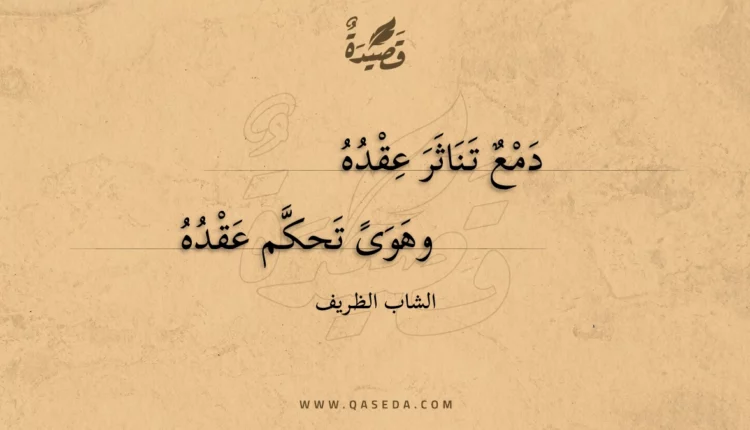 قَصِيْدَةٌ
دَمْعٌ تَنَاثَرَ عِقْدُهُ
وهَوَىً تَحكَّم عَقْدُهُ
الشاب الظريف
WWW.QASEDA.COM